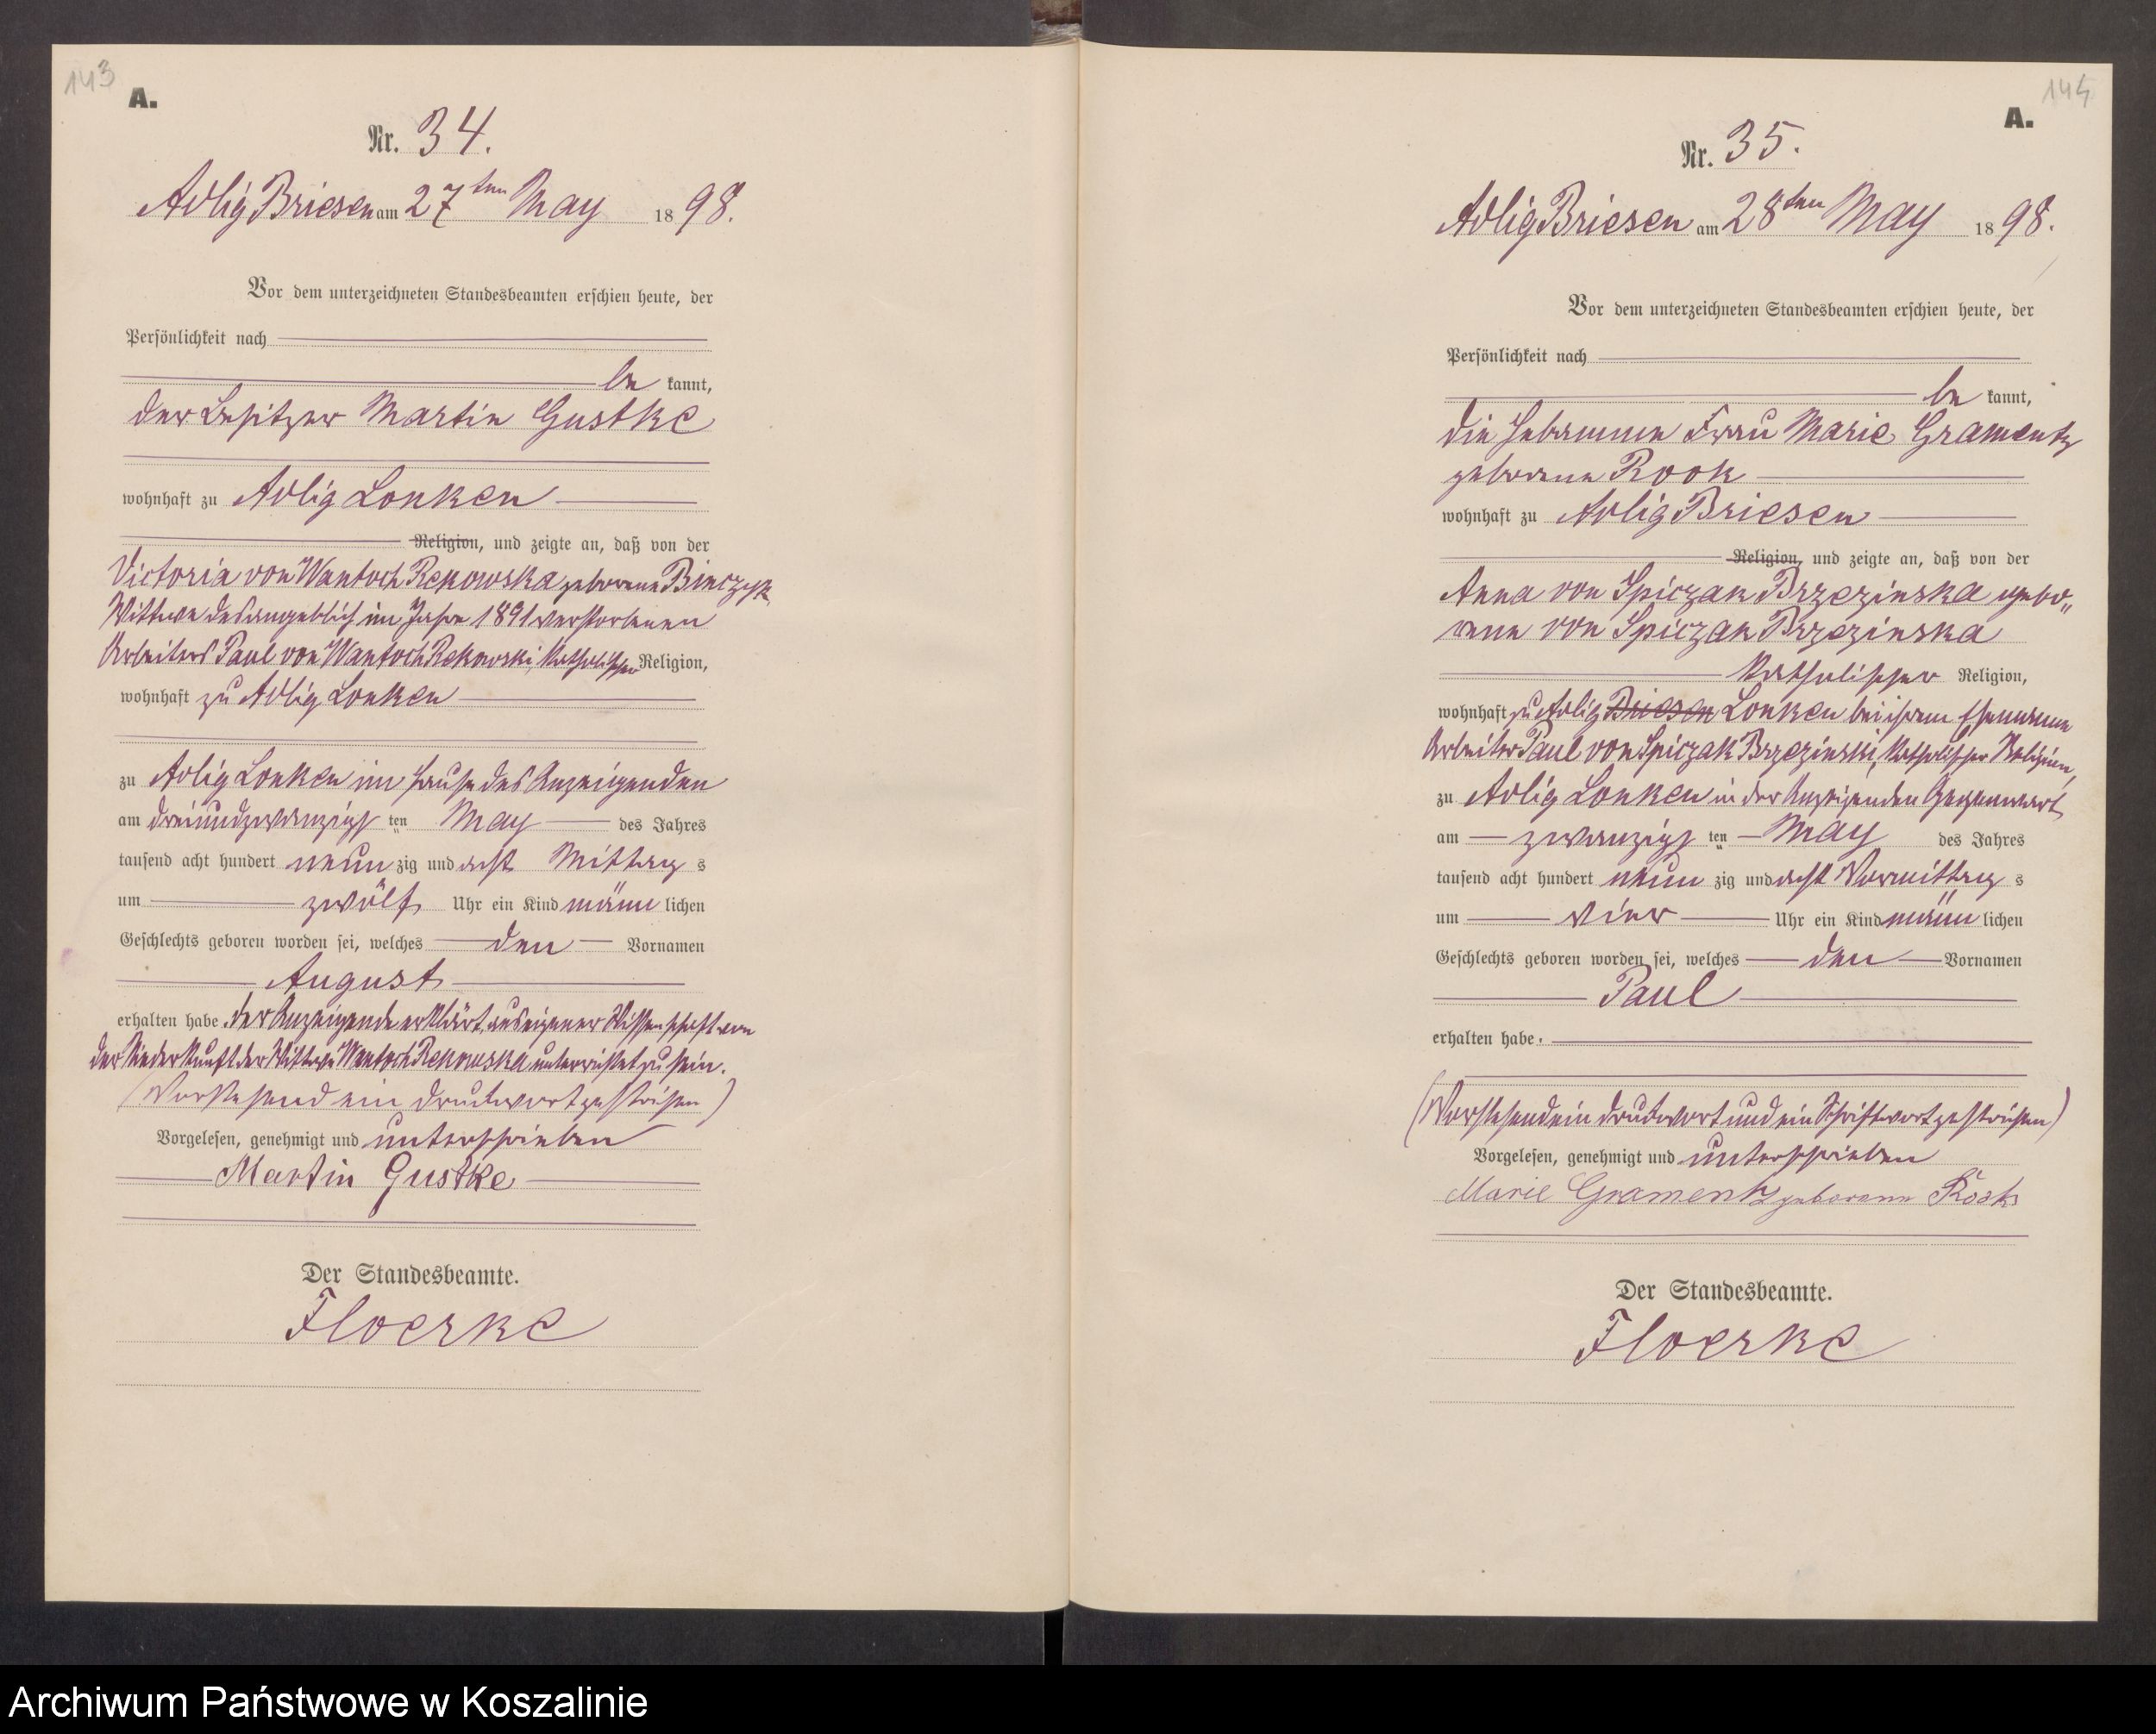 143
A.
Nr. 34.
Adlig Briesen am 27ten May 1898.
Vor dem unterzeichneten Standesbeamten erschien heute, der
Persönlichkeit nach
be kannt,
der Besitzer Martin Gustke
wohnhaft zu Adlig Lonken
Religion, und zeigte an, daß von der
Victoria von Wantoch Rekowska geborene Binczyk,
Wittwe des angeblich im Jahre 1891 verstorbenen
Arbeiters Paul von Wantoch Rekowski, katholischer Religion,
wohnhaft zu Adlig Lonken
zu Adlig Lonken im Hause des Anzeigenden
am dreiundzwanzigs ten May des Jahres
tausend acht hundert neun zig und acht Mittag s
um zwölf Uhr ein Kind männ lichen
Geschlechts geboren worden sei, welches den Vornamen
August
erhalten habe. der Anzeigende erklärt, aus eigener Wissenschaft von
der Niederkunft der Wittwe Wantoch Rekowska unterrichtet zu sein.
(Vorstehend ein Druckwort gestrichen)
Vorgelesen, genehmigt und unterschrieben
Martin Gustke
Der Standesbeamte.
Floerke
144
A.
Nr. 35.
Adlig Briesen am 28ten May 1898.
Vor dem unterzeichneten Standesbeamten erschien heute, der
Persönlichkeit nach
be kannt,
die Hebamme Frau Marie Gramentz
geborene Rook
wohnhaft zu Adlig Briesen
Religion, und zeigte an, daß von der
Anna von Spiczak Brzezinska gebo„
rene von Spiczak Brzezinska
katholischer Religion,
wohnhaft zu Adlig Briesen Lonken bei ihrem Ehemanne
Arbeiter Paul von Spiczak Brzezinski, katholischer Religion,
zu Adlig Lonken in der Anzeigenden Gegenwart
am zwanzigs ten May des Jahres
tausend acht hundert neun zig und acht Vormittag s
um vier Uhr ein Kind männ lichen
Geschlechts geboren worden sei, welches den Vornamen
Paul
erhalten habe.
(Vorstehend ein Druckwort und ein Schriftwort gestrichen)
Vorgelesen, genehmigt und unterschrieben
Marie Gramentz geborene Rook
Der Standesbeamte.
Floerke
Archiwum Państwowe w Koszalinie